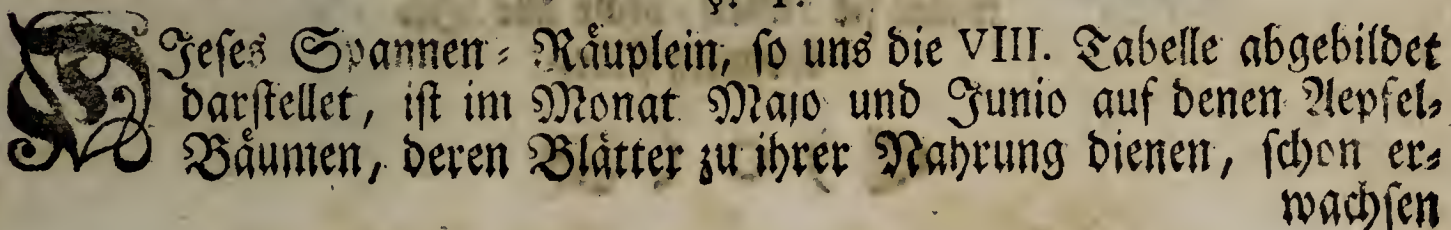 §. 1.
DJeses Spannen-Räuplein, so uns die VIII. Tabelle abgebildet
darstellet, ist im Monat Majo und Junio auf denen Aepfel-
Bäumen, deren Blätter zu ihrer Nahrung dienen, schon er-
wachsen